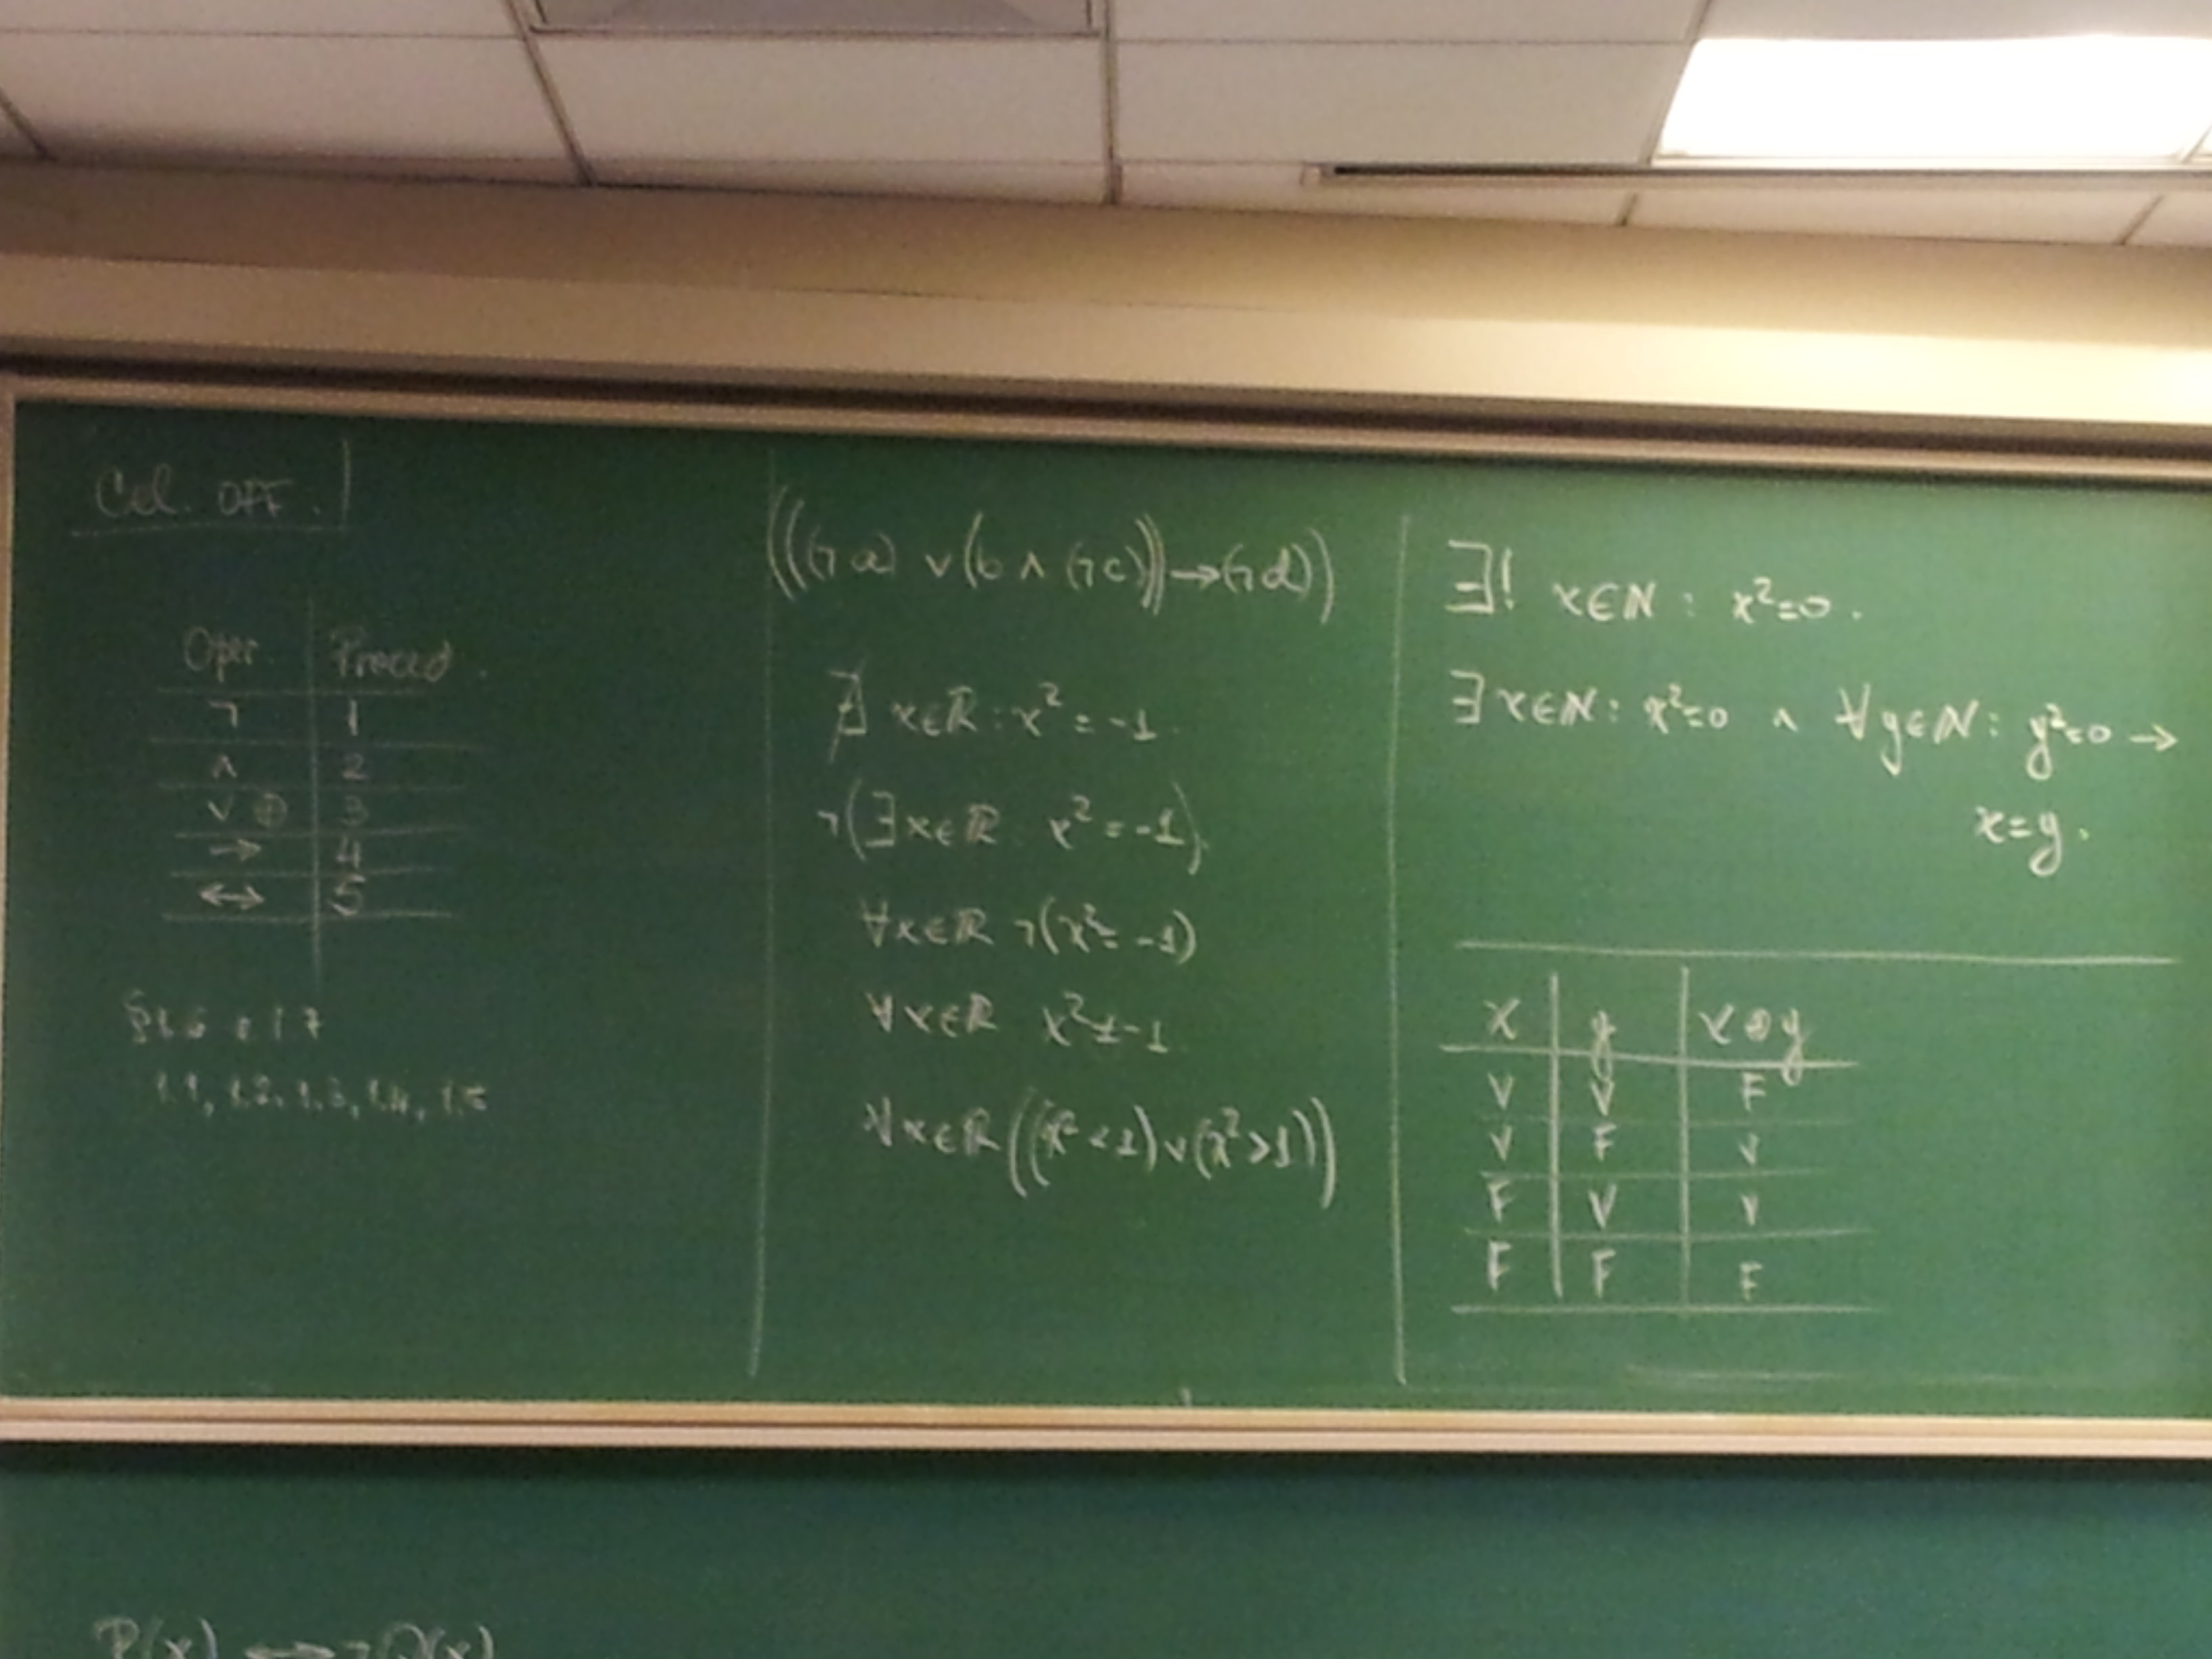 Cel. OFF.
Oper. Preced.
¬ 1
∧ 2
∨ ⊕ 3
→ 4
↔ 5
§1.6 e 1.7
1.1, 1.2, 1.3, 1.4, 1.5
(((¬a) ∨ (b ∧ (¬c))) → (¬d))
∄ x∈ℝ : x² = -1.
¬(∃x∈ℝ x² = -1).
∀x∈ℝ ¬(x² = -1)
∀x∈ℝ x² ≠ -1
∀x∈ℝ ((x² < 1) ∨ (x² > 1))
∃! x∈ℕ : x² = 0.
∃x∈ℕ : x² = 0 ∧ ∀y∈ℕ : y² = 0 →
x = y.
x y x⊕y
V V F
V F V
F V V
F F F
P(x) ↔ ¬Q(x)